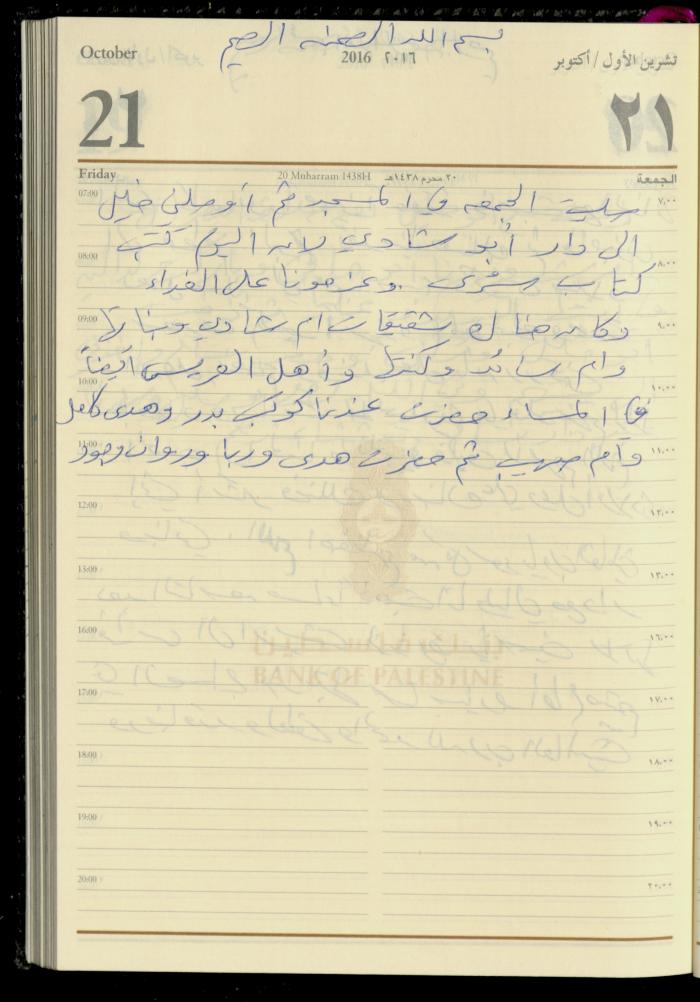 بسم الله الرحمن الرحيم
October 2016 ٢٠١٦ تشرين الأول / أكتوبر
21 ٢١
Friday 20 Muharram 1438H ٢٠ محرم ١٤٣٨هـ الجمعة
07:00 صليت الجمعه في المسجد ثم أوصلني خليل ٧,٠٠
الى دار أبو شادي لانه اليوم كتب
08:00 ٨,٠٠
كتاب بشرى وعزمونا على الغداء
09:00 وكان هناك شقيقات ام شادي وبناتها ٩,٠٠
وام سائد وكنتها وأهل العريس أيضاً
10:00 ١٠,٠٠
في المساء حضرت عندنا كوكب بدر وهدى كامل
11:00 وأم صهيب ثم حضرت هدى وربا وروان وجود ١١,٠٠
12:00 ١٢,٠٠
13:00 ١٣,٠٠
16:00 ١٦,٠٠
بنك فلسطين
BANK OF PALESTINE
17:00 ١٧,٠٠
18:00 ١٨,٠٠
19:00 ١٩,٠٠
20:00 ٢٠,٠٠